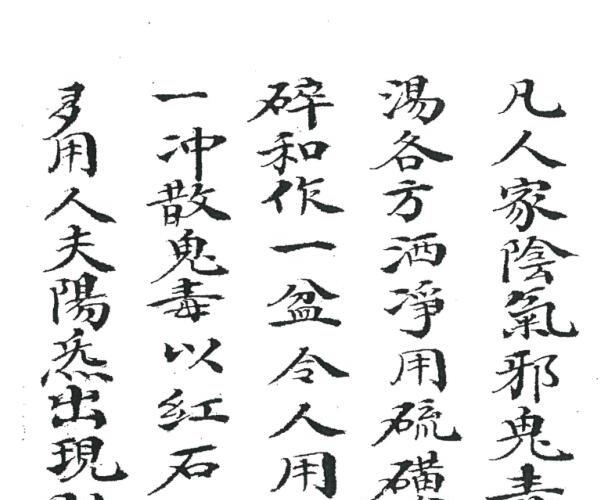 凡人家陰氣邪鬼毒
湯各方洒凈用硫磺
碎和作一盆令人用
一冲散鬼毒以紅石
多用人夫陽炁出現